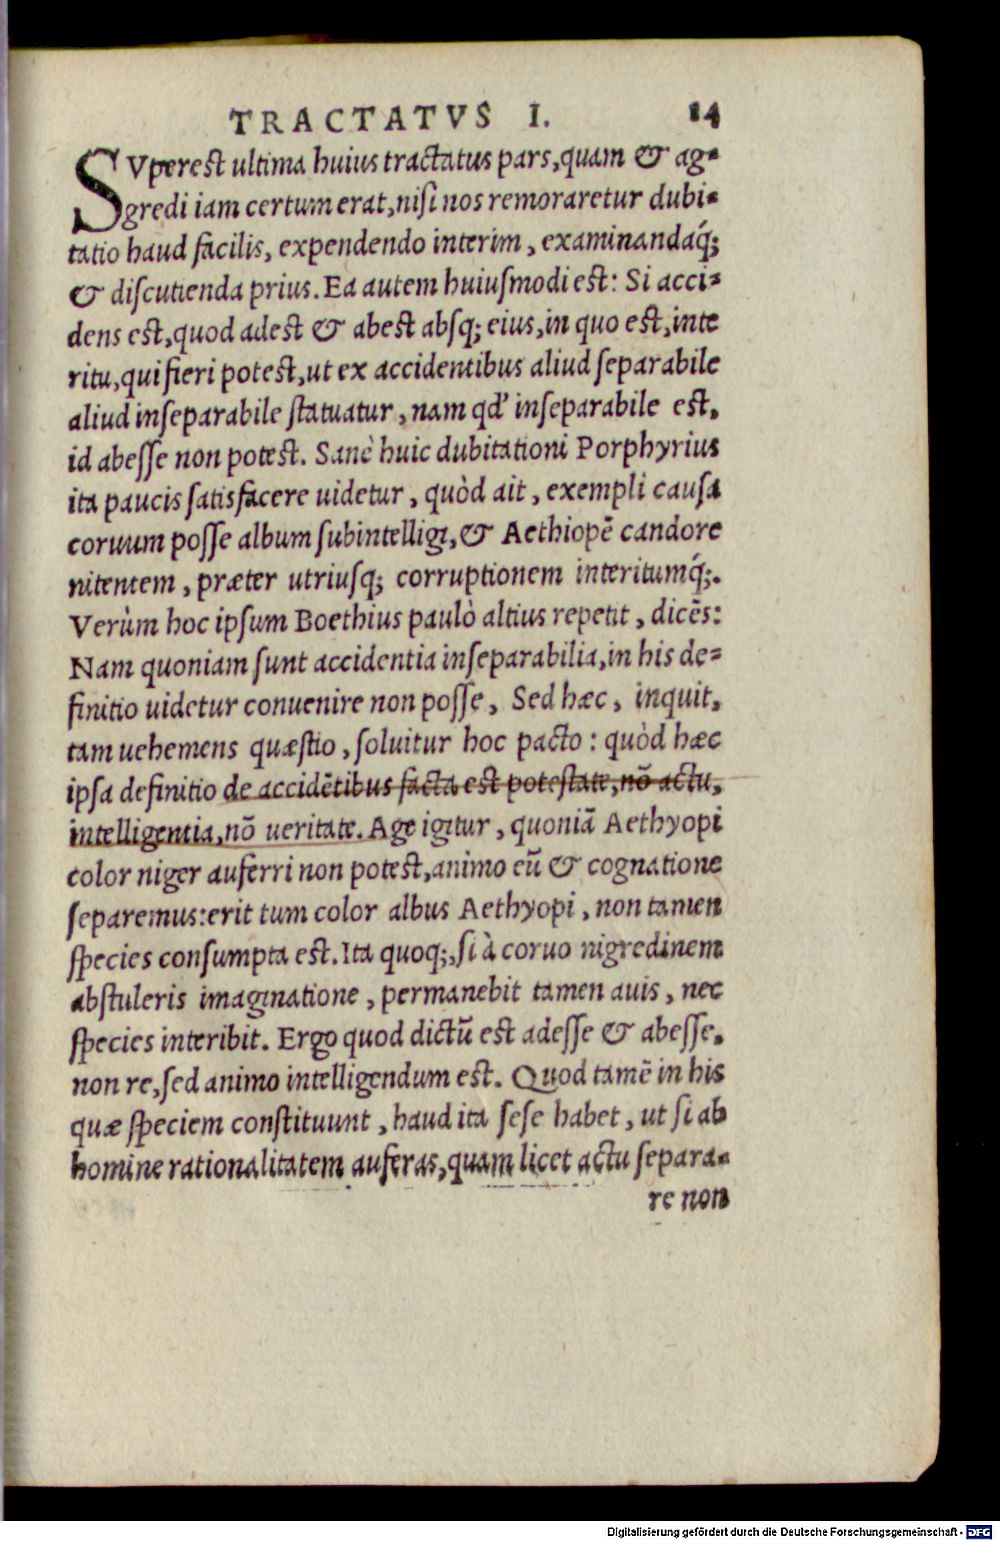 TRACTATVS I. 14
SVperest ultima huius tractatus pars, quam & ag-
gredi iam certum erat, nisi nos remoraretur dubi-
tatio haud facilis, expendendo interim, examinandaq́;
& discutienda prius. Ea autem huiusmodi est: Si acci-
dens est, quod adest & abest absq; eius, in quo est, inte
ritu, qui fieri potest, ut ex accidentibus aliud separabile
aliud inseparabile statuatur, nam qd' inseparabile est,
id abesse non potest. Sanè huic dubitationi Porphyrius
ita paucis satisfacere uidetur, quòd ait, exempli causa
coruum posse album subintelligi, & Aethiopē candore
nitentem, præter utriusq; corruptionem interitumq́;.
Verùm hoc ipsum Boethius paulò altius repetit, dicēs:
Nam quoniam sunt accidentia inseparabilia, in his de-
finitio uidetur conuenire non posse, Sed hæc, inquit,
tam uehemens quæstio, soluitur hoc pacto: quòd hæc
ipsa definitio de accidētibus facta est potestate, nō actu,
intelligentia, nō ueritate. Age igitur, quoniā Aethyopi
color niger auferri non potest, animo eū & cognatione
separemus: erit tum color albus Aethyopi, non tamen
species consumpta est. Ita quoq;, si à coruo nigredinem
abstuleris imaginatione, permanebit tamen auis, nec
species interibit. Ergo quod dictū est adesse & abesse,
non re, sed animo intelligendum est. Quod tamē in his
quæ speciem constituunt, haud ita sese habet, ut si ab
homine rationalitatem auferas, quam licet actu separa-
re non
Digitalisierung gefördert durch die Deutsche Forschungsgemeinschaft - DFG